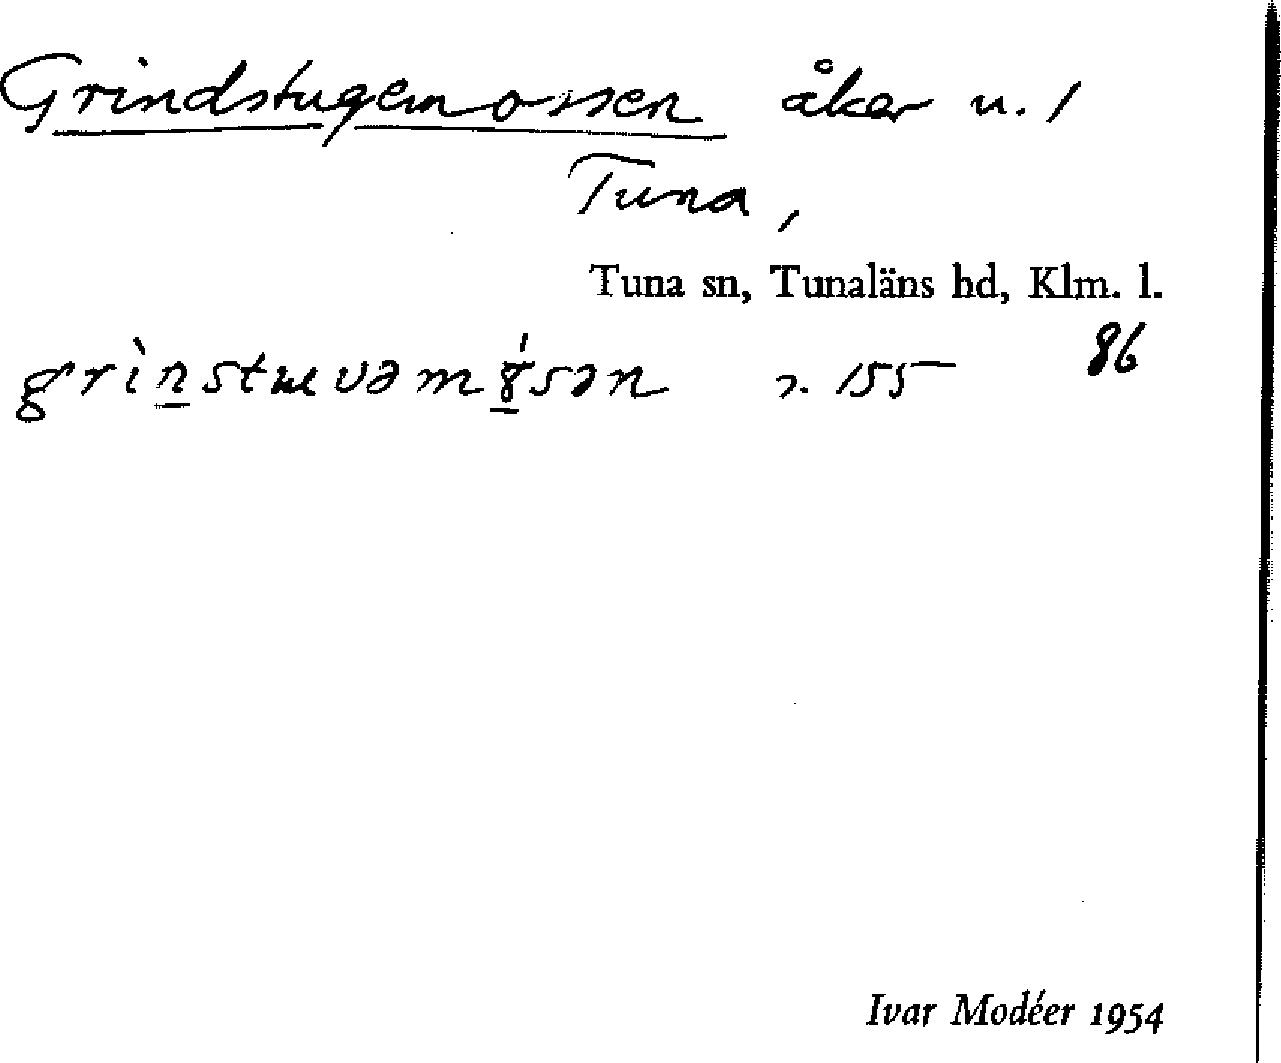 Grindstugemossen åker u. 1
Tuna,
Tuna sn, Tunaläns hd, Klm. l.
86
155
Ivar Modéer 1954